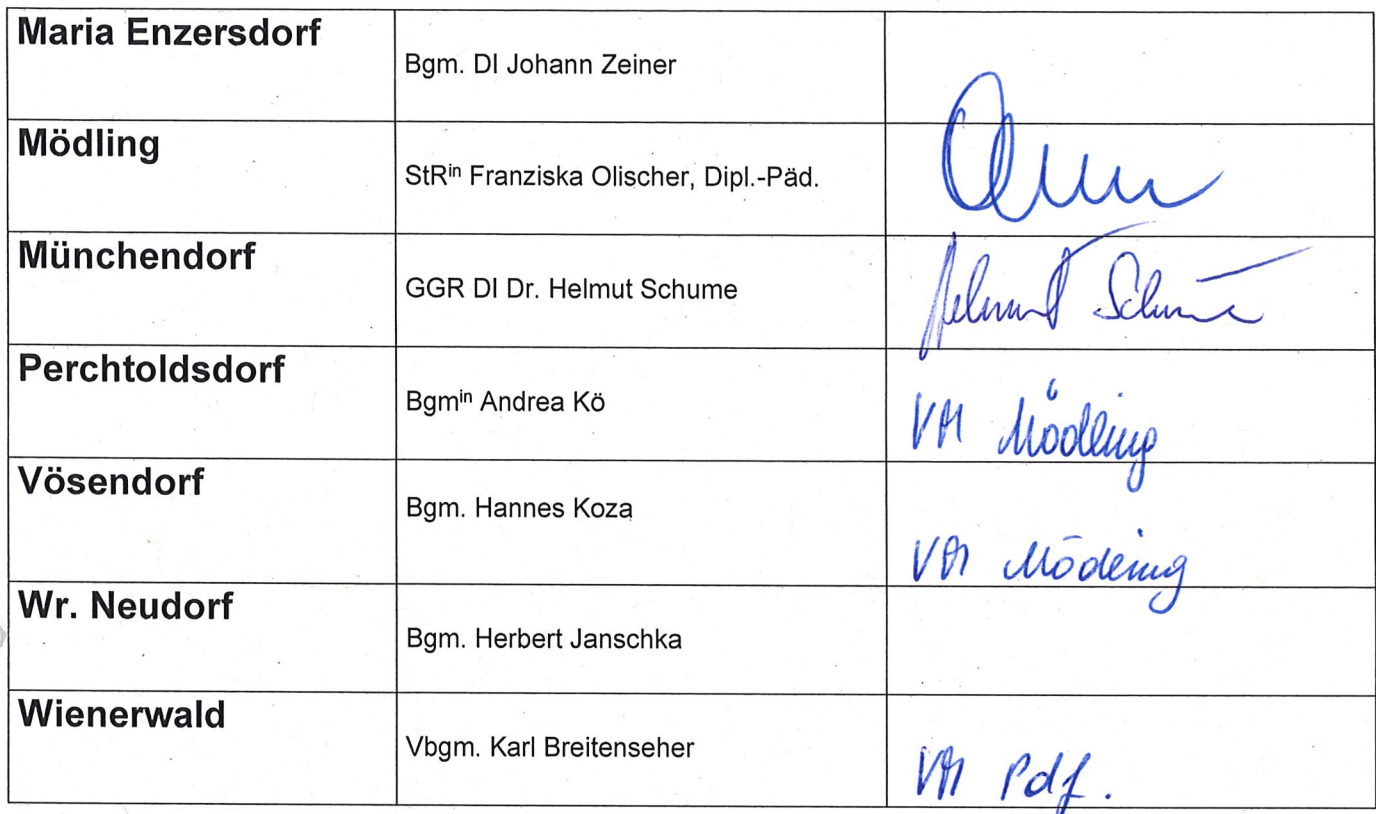 Maria Enzersdorf
Bgm. DI Johann Zeiner
Mödling
StRin Franziska Olischer, Dipl.-Päd.
Münchendorf
GGR DI Dr. Helmut Schume
Helmut Schume
Perchtoldsdorf
Bgmin Andrea Kö
VM Mödling
Vösendorf
Bgm. Hannes Koza
VM Mödling
Wr. Neudorf
Bgm. Herbert Janschka
Wienerwald
Vbgm. Karl Breitenseher
VM Pdf.